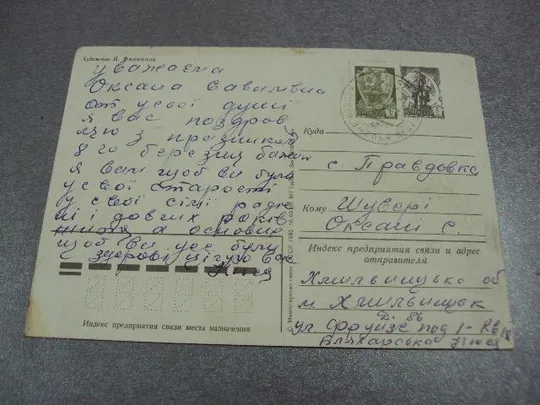 Художник И.
уважаєма
Оксана Савимвна
от усеї душі
я вас поздров
ляю з празником
8 го березня бажаю
я вам щоб ви були
у своїй старості
у своїй сімї радо
ні і довгих років
а основне
щоб Ви усе були
здорові цілую вас
Куда
с. Правдовка
Кому Шувері
Оксані С.
Индекс предприятия связи и адрес
отправителя
Хмильницько об
м Хмильницьк
ул Фрунзе под 1- кв
Индекс предприятия связи места назначения